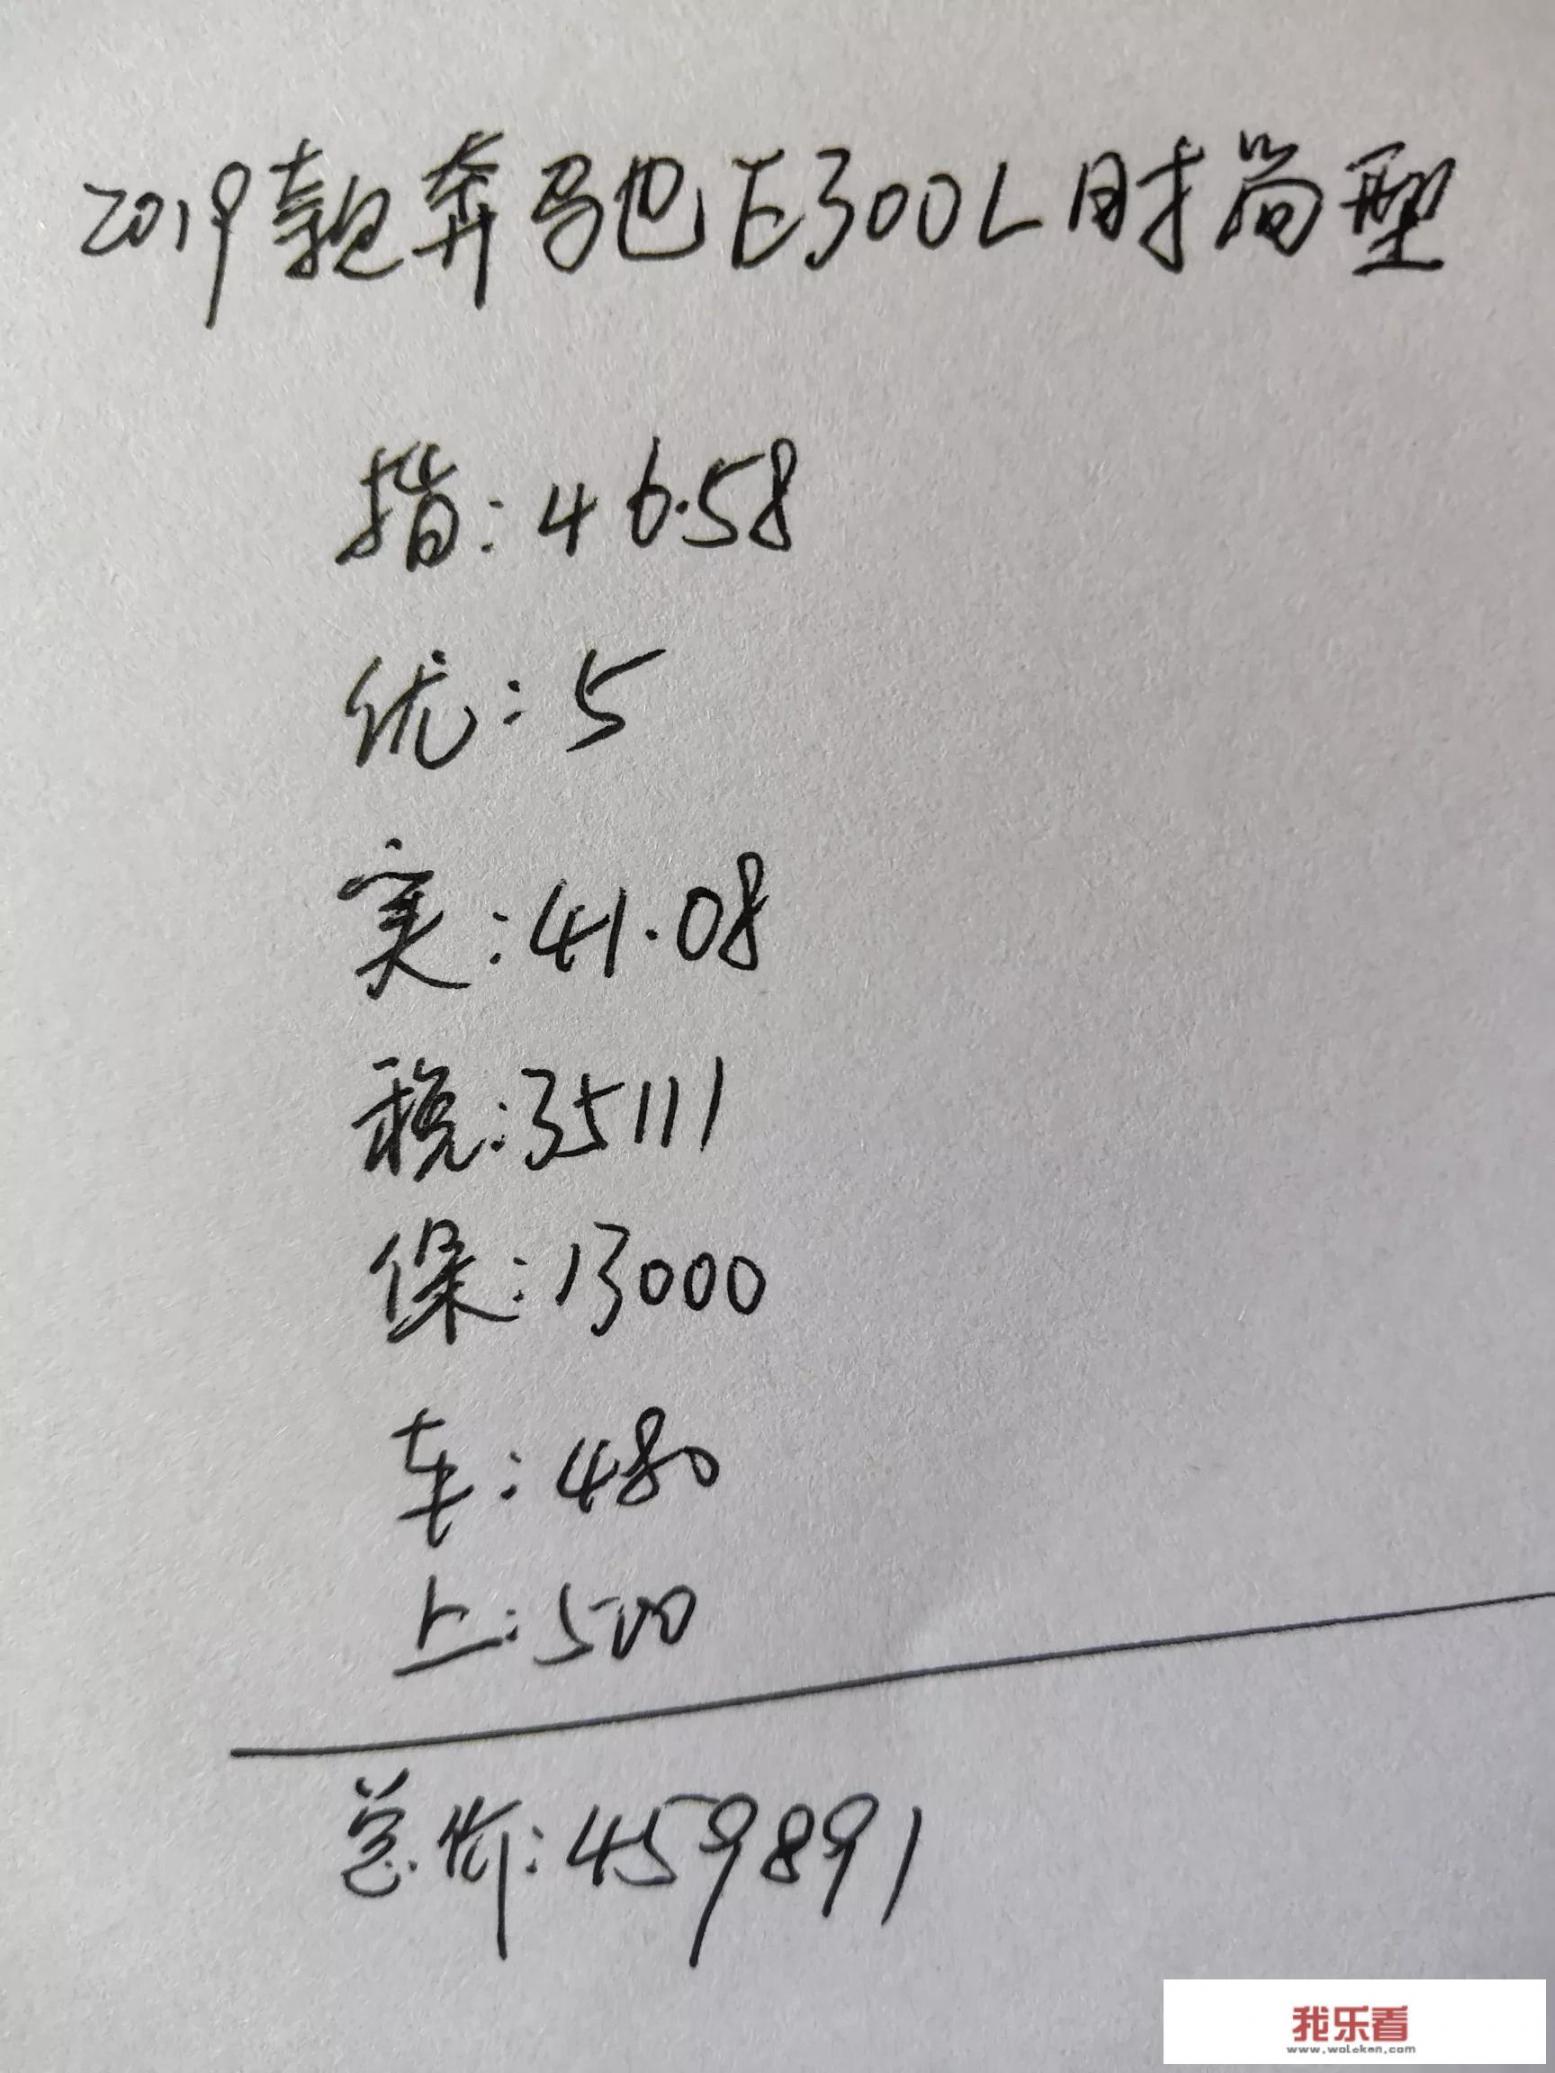 2019款奔驰E300L时尚型
指:46.58
优:5
实:41.08
税:35111
保:13000
车:480
上:500
总价:459891
我乐看
www.woleken.com